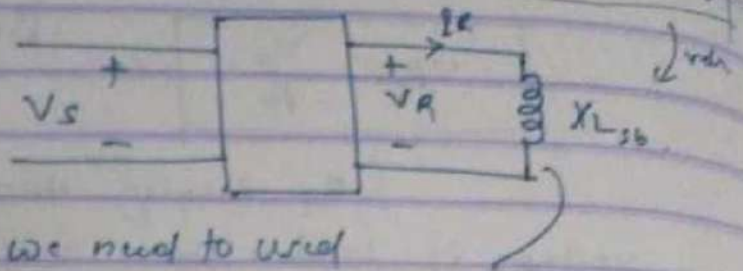 IR
+ + 
VS VR XLsh
- -
we need to used